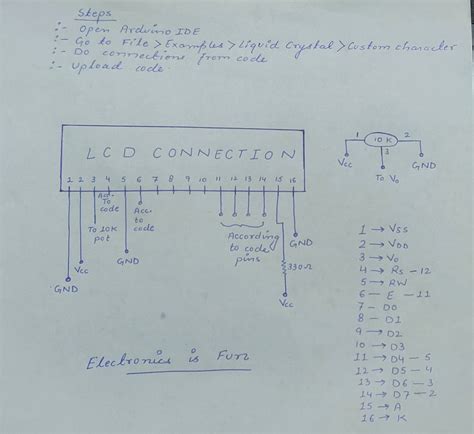 Steps
:- Open Arduino IDE
:- Go to File > Examples > Liquid Crystal > Custom character
:- Do connections from code
:- Upload code.
LCD CONNECTION
1 2 3 4 5 6 7 8 9 10 11 12 13 14 15 16
1 10K 2
3
Vcc To Vo GND
Acc. To code
To 10K pot
Acc. to code
According to code pins
GND
Vcc
GND
GND
330Ω
Vcc
1 → Vss
2 → VDD
3 → Vo
4 → Rs - 12
5 → RW
6 - E - 11
7 - D0
8 - D1
9 → D2
10 → D3
11 → D4 - 5
12 → D5 - 4
13 → D6 - 3
14 → D7 - 2
15 → A
16 → K
Electronics is Fun